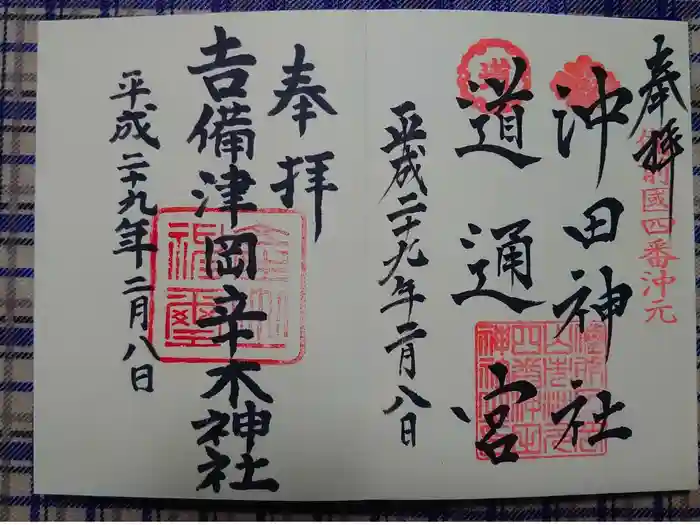 奉拝
備前國四番沖元
沖田神社
道通宮
平成二十九年二月八日
奉拝
吉備津岡辛木神社
平成二十九年二月八日